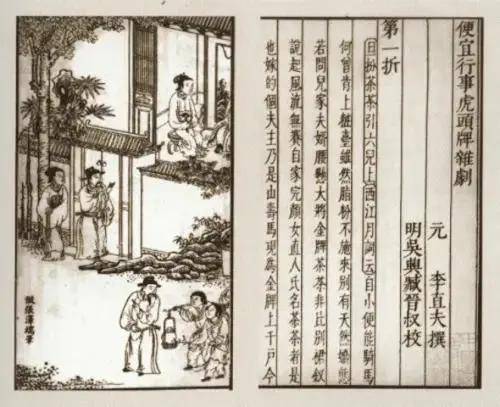 便宜行事虎頭牌雜劇
元 李直夫撰
明吳興臧晉叔校
第一折
旦扮茶茶引六兒上西江月詞云自小便能騎馬
何曾肯上粧臺雖然脂粉不施來別有天然嬌態
若問兒家夫婿腰懸大將金牌茶茶非比別裙釵
說起風流無賽自家完顏女直人氏名茶茶者是
也嫁的個夫主乃是山壽馬現為金牌上千戶今
倣張澤端筆